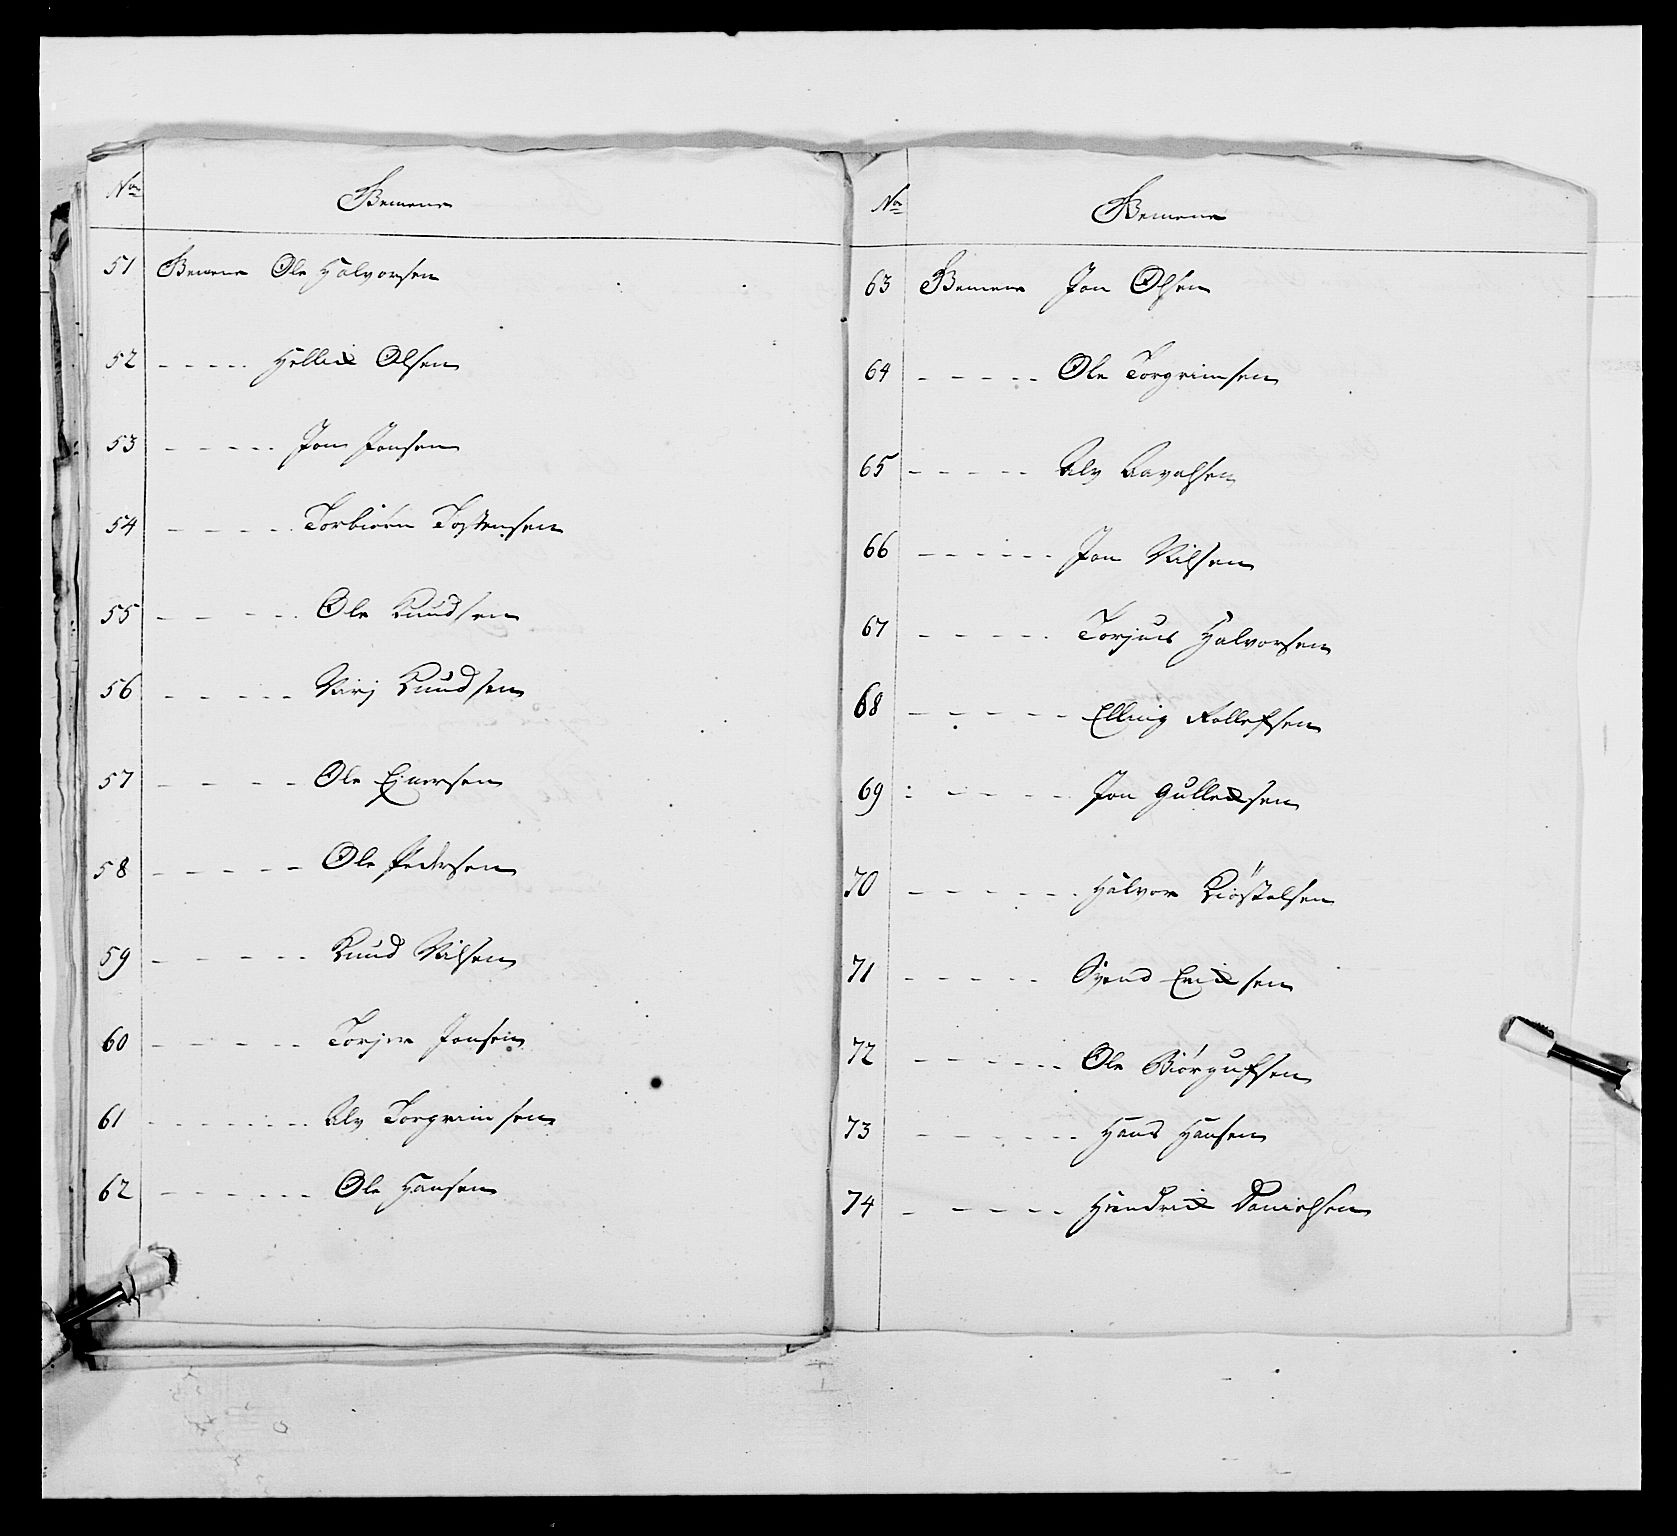 No
Bemene
51 Bemene Ole Halvorsen
52 - - - - - Hellik Olsen
53 - - - - - Jon Jonsen
54 - - - - - Torbiörn Tostensen
55 - - - - - Ole Knudsen
56 - - - - - Knudsen
57 - - - - - Ole Ejnersen
58 - - - - - Ole Pedersen
59 - - - - - Knud Nilsen
60 - - - - - Torjer Jonsen
61 - - - - - - - Alv Torgrimsen
62 - - - - - - Ole Hansen
No
Bemene
63 Bemene Jon Olsen
64 - - - - - Ole Torgrimsen
65 - - - - - Alv Aavalsen
66 - - - - - - Jon Nilsen
67 - - - - - Torjus Halvorsen
68 - - - - - Elling Rollefsen
69 : - - - - Jon Gulleksen
70 - - - - - - Halvor Kiöstelsen
71 - - - - - Svend Eriksen
72 - - - - - - Ole Biörgufsen
73 - - - - - - Hans Hansen
74 - - - - - Hendrik Danielsen